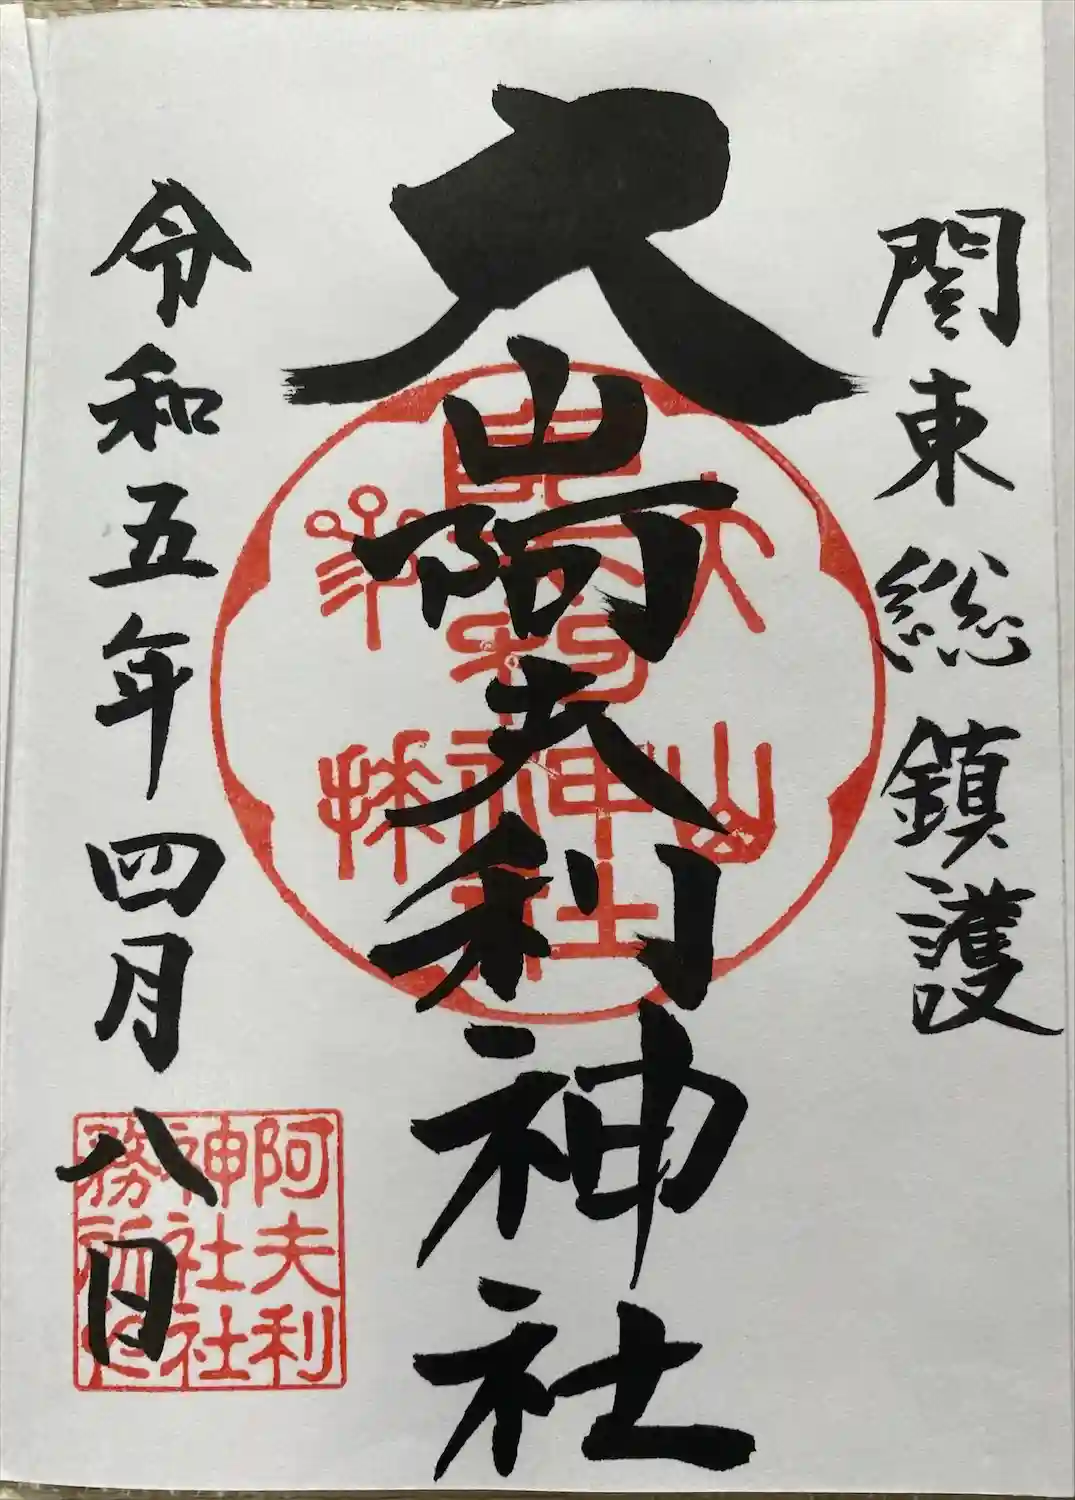 関東総鎮護
大山阿夫利神社
令和五年四月八日
大山
阿夫利神社
阿夫利
神社社
務所